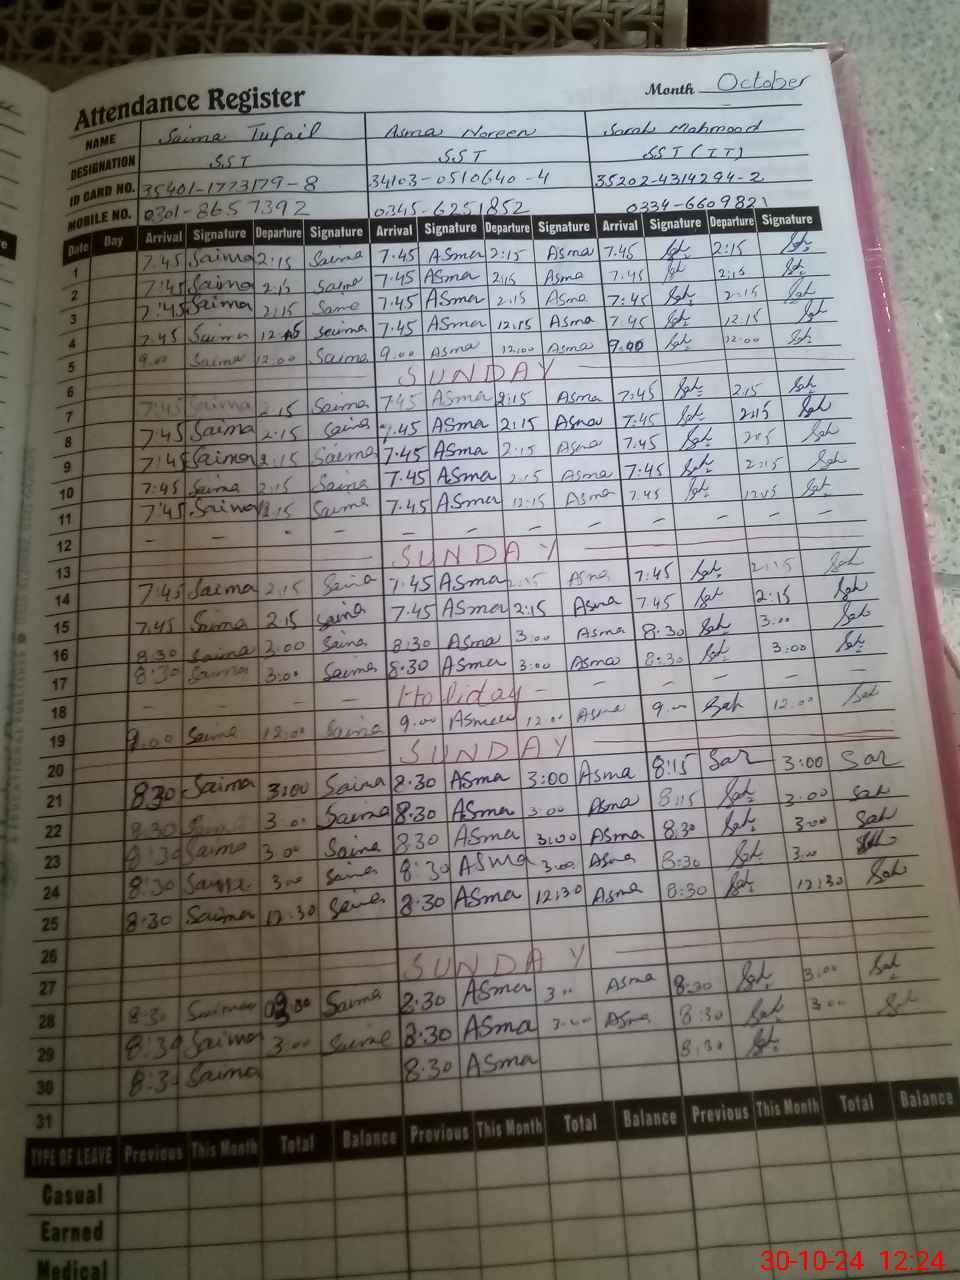 Attendance Register Month October
NAME Saima Tufail Asma Noreen Sarah Mahmood
DESIGNATION SST SST SST (IT)
ID CARD NO. 35401-1773179-8 34103-0510640-4 35202-4314294-2
MOBILE NO. 0301-8657392 0345-6251852 0334-6609821
Date Day Arrival Signature Departure Signature Arrival Signature Departure Signature Arrival Signature Departure Signature
1 7:45 Saima 2:15 Saima 7.45 ASma 2:15 Asma 7:45 2:15
2 7:45 Saima 2:15 Saima 7:45 ASma 2:15 Asma 7:45 2:15
3 7:45 Saima 2:15 7:45 ASma 2:15 Asma 7:45 2:15
4 7:45 Saima Saima 7:45 ASma 12:15 Asma 7:45 12:15
5 9.00 Saima 12:00 Saima 9.00 Asma 12:00 Asma 9:00 12:00
6 SUNDAY
7 7:45 Saima 2:15 Saima 7:45 ASma 2:15 Asma 7:45 2:15
8 7:45 Saima 2:15 Saima 7.45 ASma 2:15 Asma 7:45 2:15
9 7:45 Saima 2:15 Saima 7:45 ASma 2:15 Asma 7:45 2:15
10 7:45 Saima 2:15 Saima 7.45 ASma 2:15 Asma 7:45 2:15
11 7:45 Saima Saima 7.45 ASma 12:15 Asma 7:45 12:15
12 – – – – – – – – – – – –
13 SUNDAY
14 7:45 Saima 2:15 Saina 7:45 ASma 2:15 Asma 7:45 2:15
15 7:45 Saima 2:15 Saina 7:45 ASma 2:15 Asma 7:45 2:15
16 8:30 Saima 3:00 Saina 8:30 Asma 3:00 Asma 8:30 3:00
17 8:30 Saima 3:00 Saima 8:30 ASma 3:00 Asma 8:30 3:00
18 – – – – Holiday – – – – –
19 9.00 Saima 12:00 Saima 9.00 12:00 Asma 9.00 Sah 12.00 Sah
20 SUNDAY
21 830 Saima 3:00 Saina 8:30 ASma 3:00 Asma 8:15 Sar 3:00 Sar
22 8:30 3:00 Saima 8:30 ASma 3:00 Asma 8:15 3:00 Sah
23 8:30 Saima 3:00 Saina 8:30 ASma 3:00 Asma 8:30 3:00 Sah
24 8:30 Saima 3:00 Saina 8:30 ASma 3:00 Asma 8:30 3:00
25 8:30 Saima 12:30 Saima 8:30 ASma 12:30 Asma 8:30 12:30 Sah
26
27 SUNDAY
28 8:30 Saima Saima 8:30 ASma 3:00 Asma 8:30 3:00
29 8:30 Saima 3:00 Saima 8:30 ASma 3:00 Asma 8:30 3:00
30 8:3 Saima 8:30 ASma 8:30
31
TYPE OF LEAVE Previous This Month Total Balance Previous This Month Total Balance Previous This Month Total Balance
Casual
Earned
Medical
30-10-24 12:24